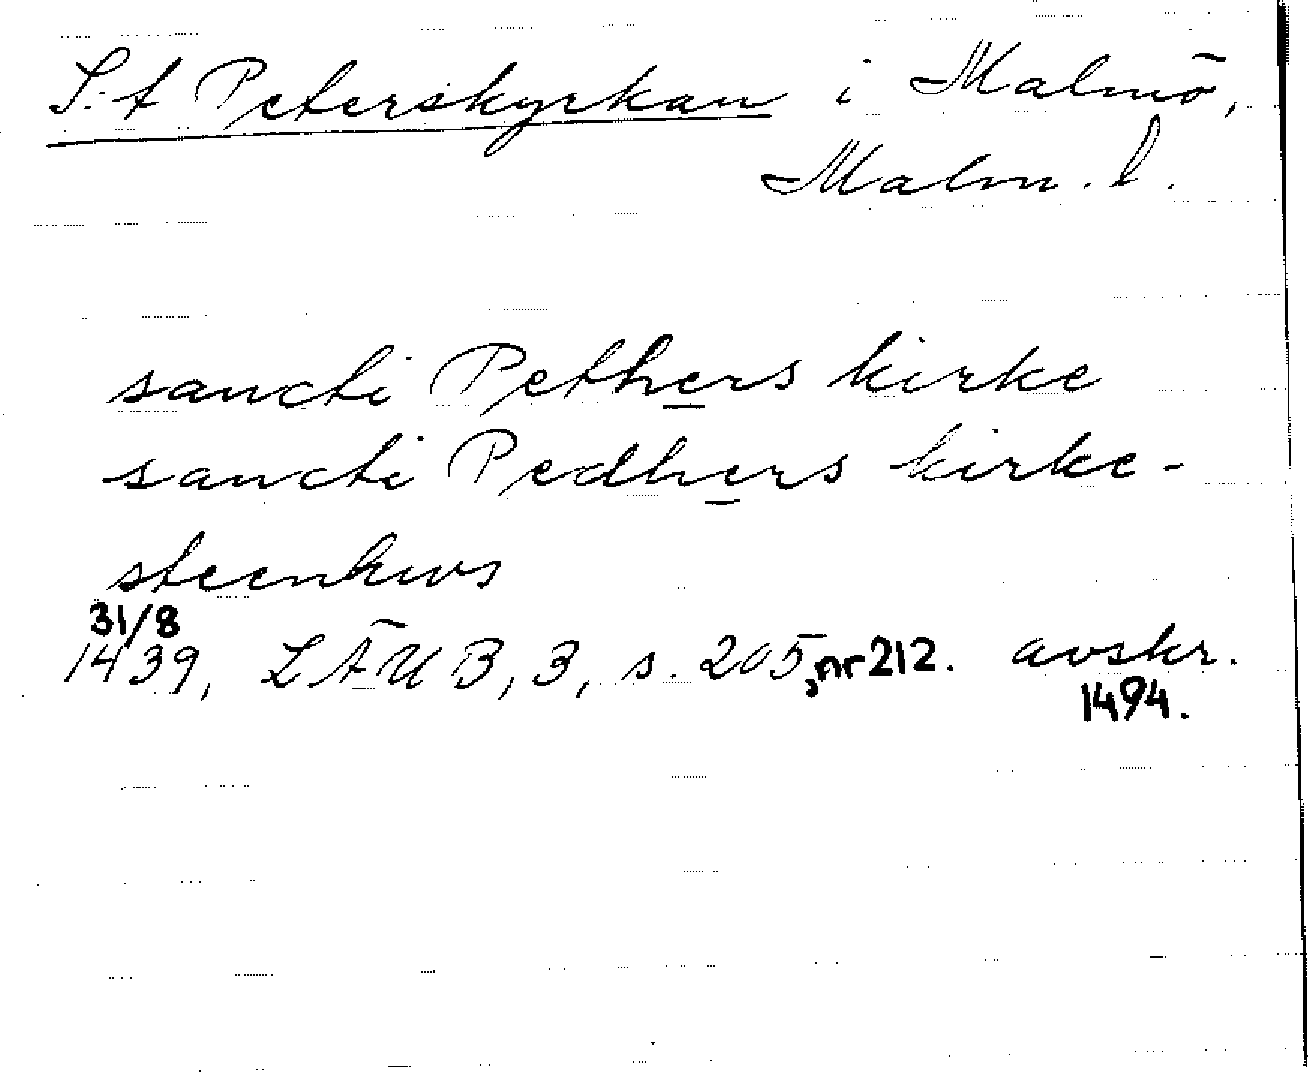 S:t Peterskyrkan i Malmö,
Malm. l.
sancti Pethers kirke
sancti Pedhers kirke-
steenhws
31/8
1439, LÄUB, 3, s. 205, nr 212. avskr.
1494.